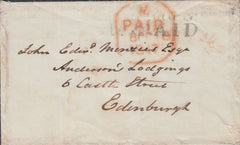 PAID
PAID
John Edwd. Menzies Esqr
Andersons Lodgings
6 Castle Street
Edinburgh